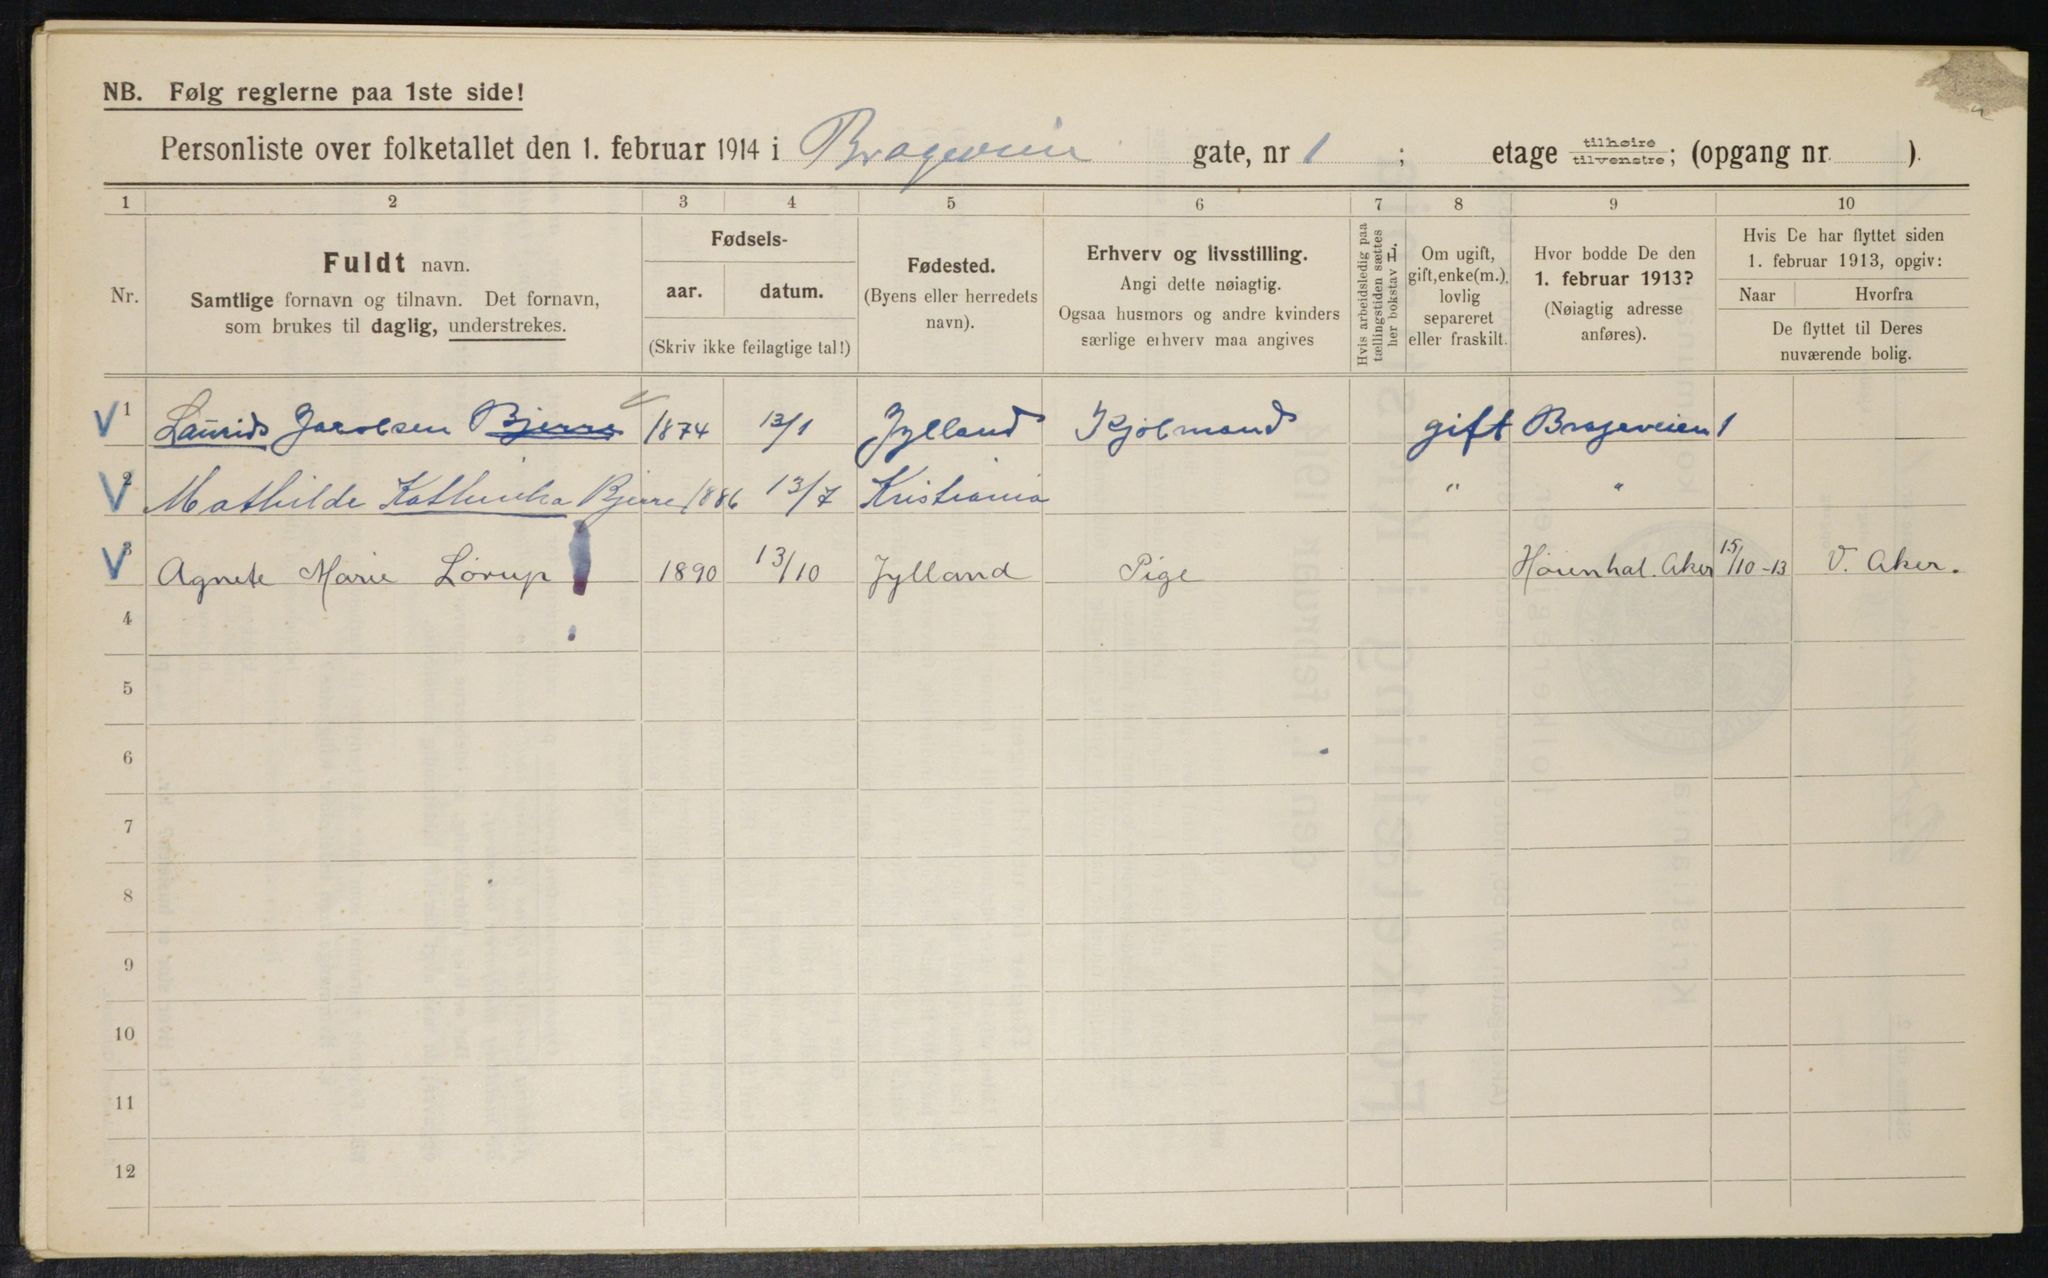 NB. Følg reglerne paa 1ste side!
Personliste over folketallet den 1. februar 1914 i Brageveien gate, nr 1 ; etage tilhøire tilvenstre; (opgang nr. ).
1 2 3 4 5 6 7 8 9 10
Nr.
Fuldt navn.
Samtlige fornavn og tilnavn. Det fornavn,
som brukes til daglig, understrekes.
Fødsels-
aar. datum.
(Skriv ikke feilagtige tal!)
Fødested.
(Byens eller herredets
navn).
Erhverv og livsstilling.
Angi dette nøiagtig.
Ogsaa husmors og andre kvinders
særlige erhverv maa angives
Hvis arbeidsledig paa
tællingstiden sættes
her bokstav L.
Om ugift,
gift, enke(m.),
lovlig
separeret
eller fraskilt.
Hvor bodde De den
1. februar 1913?
(Nøiagtig adresse
anføres).
Hvis De har flyttet siden
1. februar 1913, opgiv:
Naar Hvorfra
De flyttet til Deres
nuværende bolig.
V 1 Laurids Jacobsen Bjerre 1874 13/1 Jylland Kjøbmand gift Brageveien 1
V 2 Mathilde Kathinka Bjerre 1886 13/7 Kristiania " "
V 3 Agnete Marie Lørup 1890 13/10 Jylland Pige Aker 15/10-13 V. Aker.
4
5
6
7
8
9
10
11
12